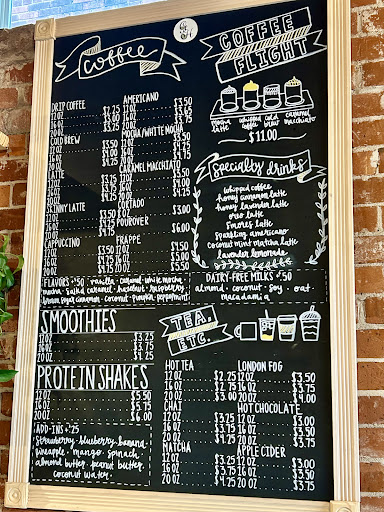 coffee
DRIP COFFEE
12 OZ $2.25
16 OZ $3.00
20 OZ $3.75
COLD BREW
12 OZ $3.50
16 OZ $4.00
20 OZ
LATTE
12 OZ $3.25
16 OZ $3.75
20 OZ
SKINNY LATTE
12 OZ
16 OZ
20 OZ
CAPPUCCINO
12 OZ $3.50
16 OZ
20 OZ
AMERICANO
12 OZ $3.50
16 OZ
20 OZ $3.75
MOCHA/WHITE MOCHA
12 OZ $3.50
16 OZ
20 OZ
CARAMEL MACCHIATO
12 OZ $3.50
16 OZ
20 OZ
CORTADO
8 OZ $3.00
POUROVER
16 OZ
FRAPPE
12 OZ $4.50
16 OZ $5.00
20 OZ $5.50
FLAVORS +.50 : vanilla. caramel. white mocha
mocha. salted caramel. hazelnut. raspberry
brown sugar cinnamon. coconut. pumpkin. peppermint
COFFEE
FLIGHT
mocha latte
whipped coffee
cold brew
caramel macchiato
$11.00
Specialty drinks
whipped coffee
honey cinnamon latte
honey lavender latte
oreo latte
s'mores latte
sparkling americano
coconut mint matcha latte
lavender lemonade
DAIRY FREE MILKS +.50
almond . coconut . soy . oat .
macadamia
SMOOTHIES
12 OZ $3.25
16 OZ $3.75
20 OZ $4.25
PROTEIN SHAKES
12 OZ $5.50
16 OZ $5.75
20 OZ $6.00
ADD-INS +.25
strawberry. blueberry. banana.
pineapple . mango. spinach.
almond butter. peanut butter.
coconut water.
TEA,
ETC.
HOT TEA
12 OZ $2.25
16 OZ $2.75
20 OZ $3.00
CHAI
12 OZ $3.25
16 OZ $3.75
20 OZ $4.25
MATCHA
12 OZ $3.25
16 OZ $3.75
20 OZ $4.25
LONDON FOG
12 OZ $3.50
16 OZ $3.75
20 OZ $4.00
HOT CHOCOLATE
12 OZ $3.50
16 OZ $3.50
20 OZ $3.75
APPLE CIDER
12 OZ $3.00
16 OZ $3.50
20 OZ $3.75